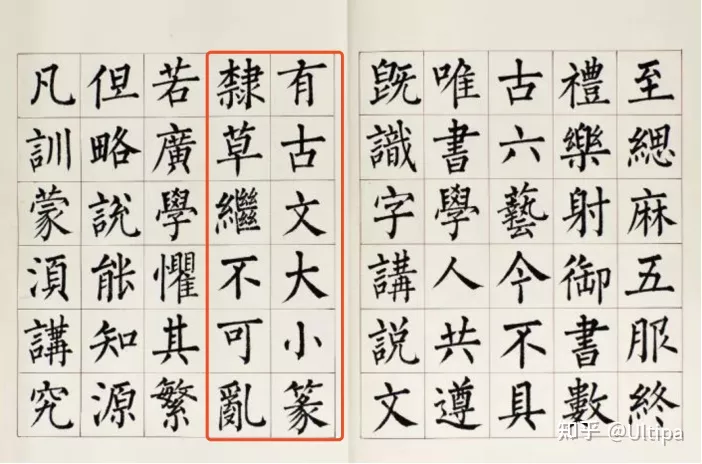 至緦麻五服終
禮樂射御書數
古六藝今不具
唯書學人共遵
既識字講説文
有古文大小篆
隸草繼不可亂
若廣學懼其繁
但略說能知源
凡訓蒙湏講究
知乎 @Ultipa